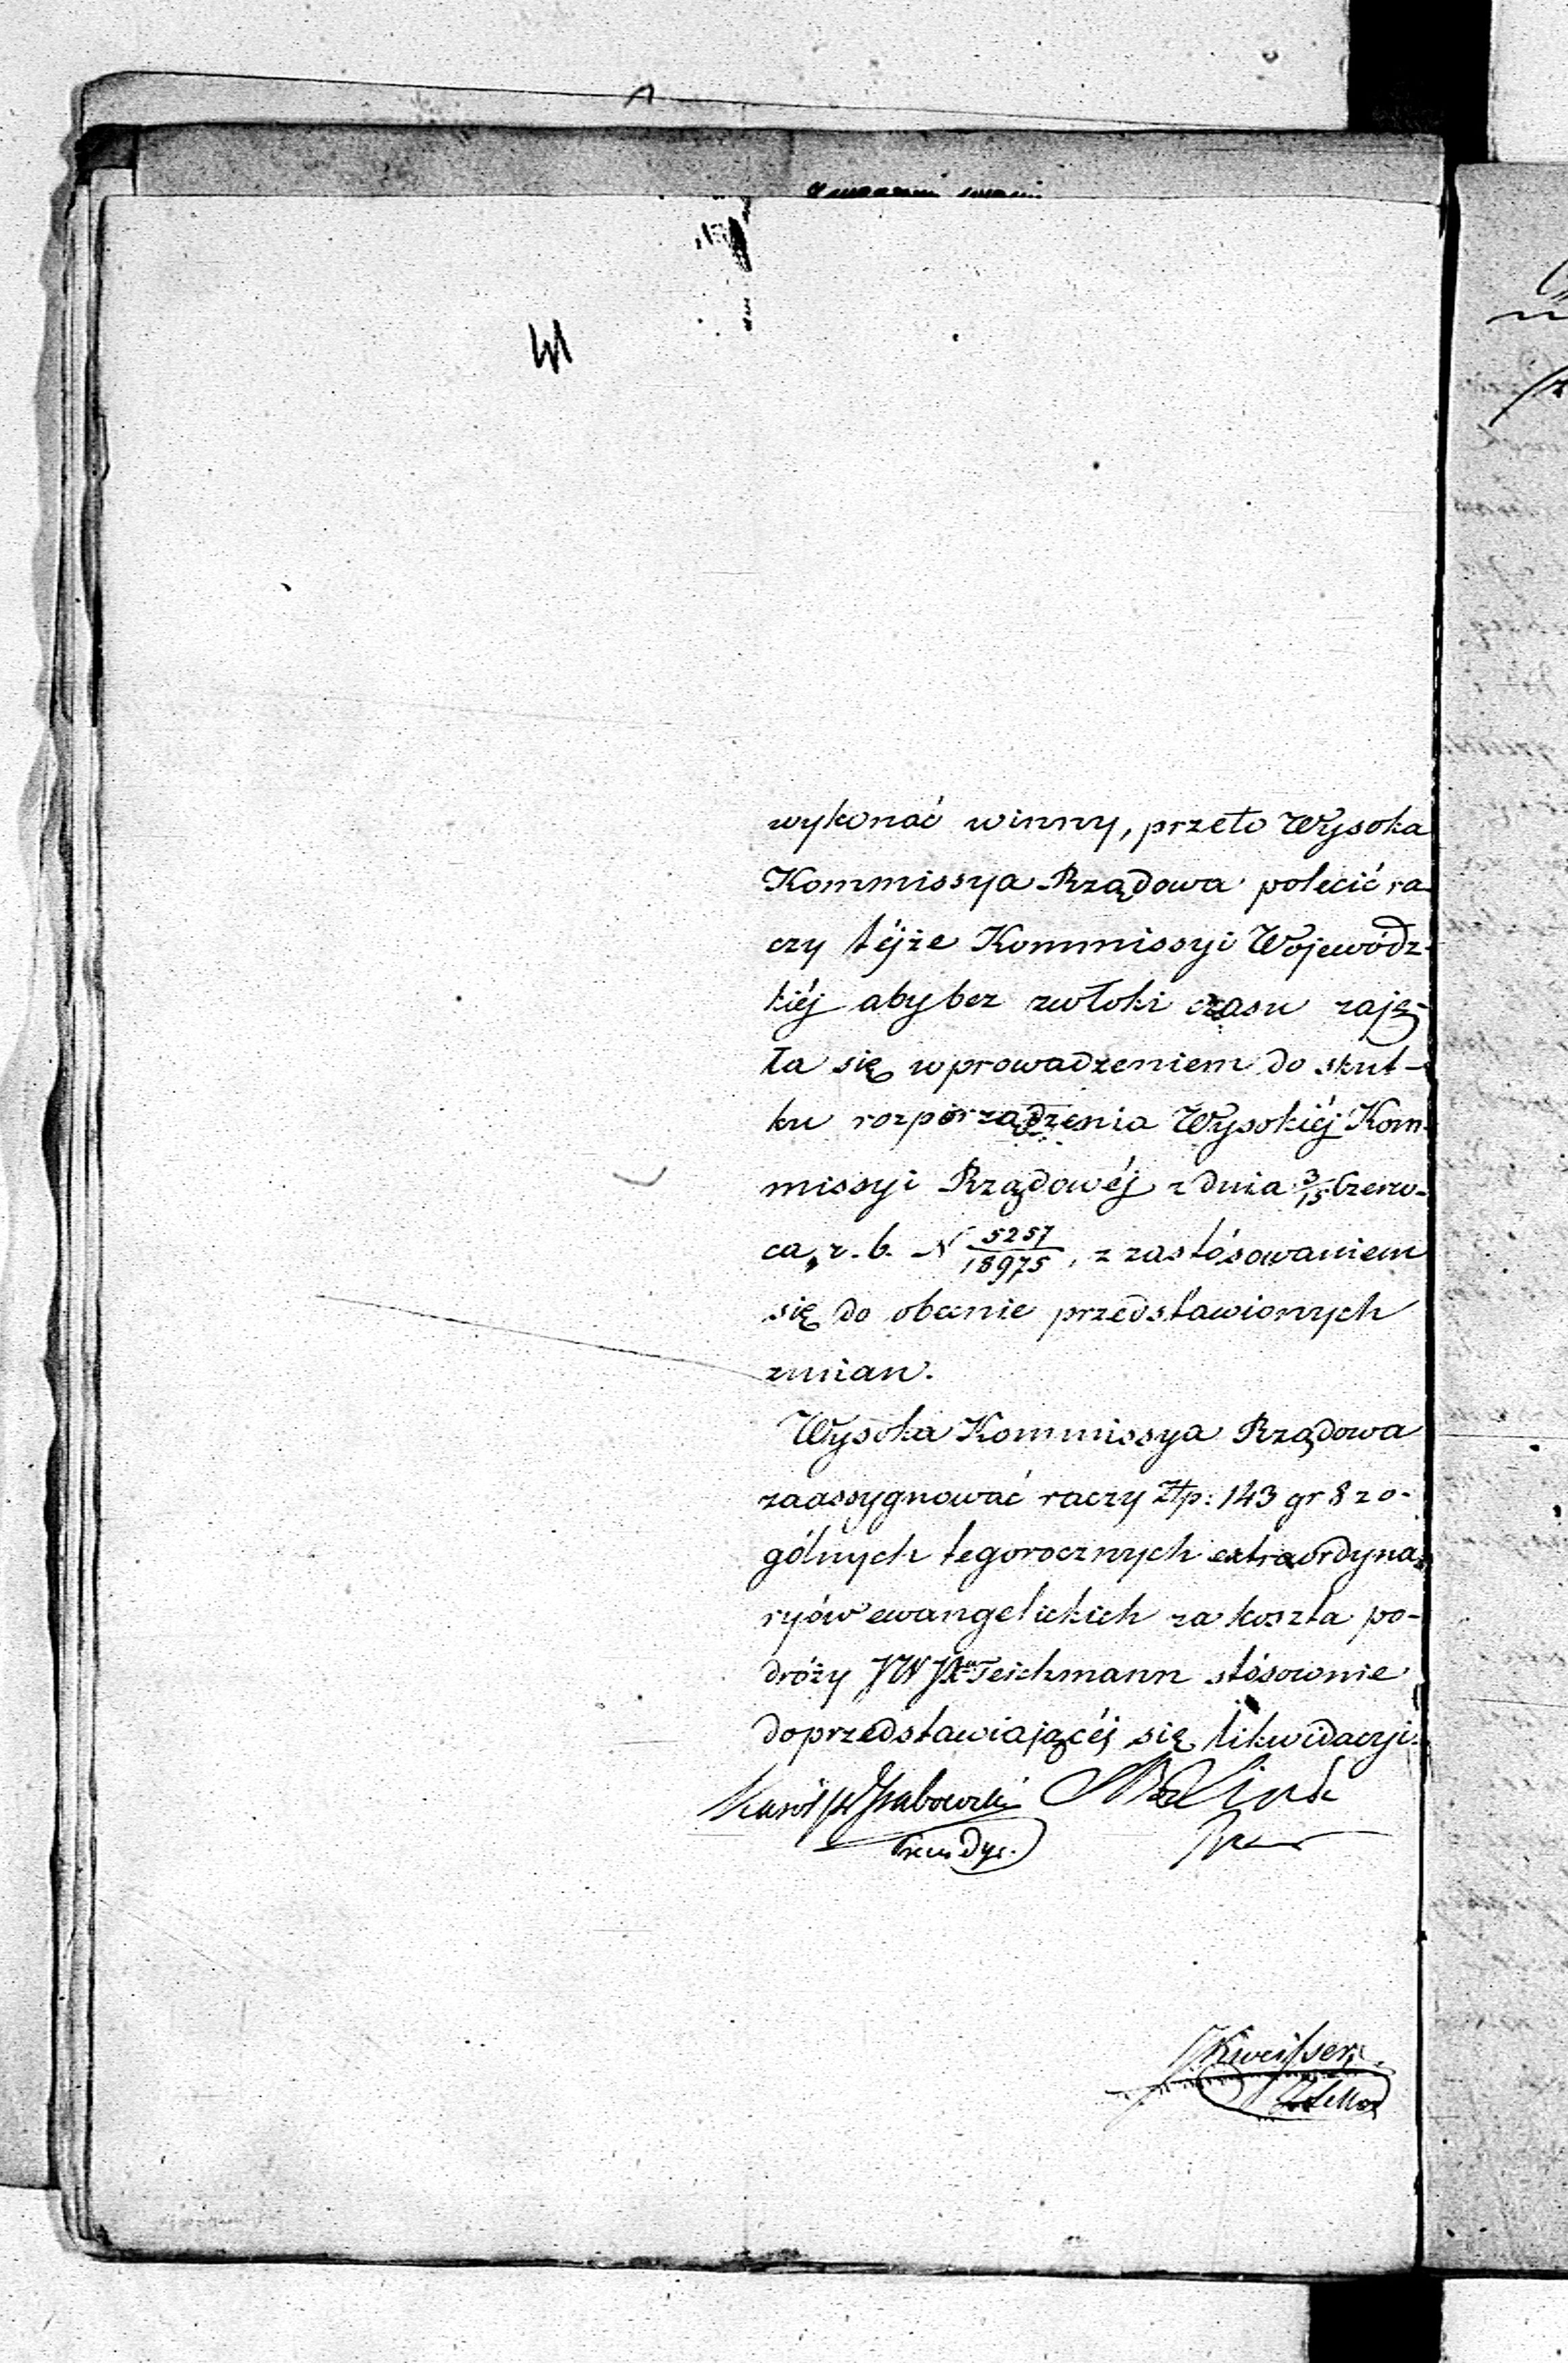 wykonać winny, przeto Wysoka
Kommissya Rządowa polecić ra-
czy téjże Kommissyi Wojewódz-
kiéj aby bez zwłoki czasu zaję-
ła się wprowadzeniem do skut-
ku rozporządzenia Wysokiéj Kom-
missyi Rządowéj z dnia 3/15 Czerw-
ca, r. b. N 5257/18975, z zastósowaniem
się do obecnie przedstawionych
zmian.
Wysoka Kommissya Rządowa
zaassygnować raczy Złp: 143 gr 8 z o-
gólnych tegorocznych extraordyna-
ryów ewangelickich za koszta po-
dróży JW JX Teichmann stósownie
do przedstawiającéj się likwidacyi.